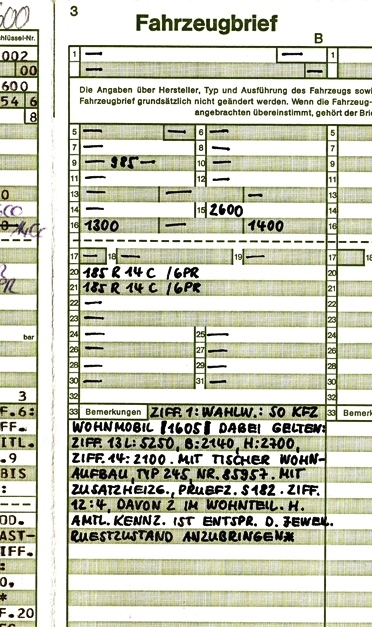 3
Fahrzeugbrief
B
hlüssel-Nr.
002
00
600
54 6
8
1 — — 1
—
Die Angaben über Hersteller, Typ und Ausführung des Fahrzeugs sowi
Fahrzeugbrief grundsätzlich nicht geändert werden. Wenn die Fahrzeug-
angebrachten übereinstimmt, gehört der Brie
5 — — 6 — 5
7 — 8 — 7
9 — 985 — 10 — 9
11 — 12 — 11
13 — — — 13
14 — 15 2600 14
16 1300 1400 16
17 — 18 — 19 — 17 18
20 185 R 14 C /6PR 20
21 185 R 14 C /6PR 21
22 — 22
23 — 23
24 — 25 — 24
26 — 27 — 26
28 — 29 — 28
30 — 31 — 30
32 32
33 Bemerkungen ZIFF. 1: WAHLW.: SO KFZ 33 Bemerk
WOHNMOBIL |1605| DABEI GELTEN:
ZIFF. 13 L: 5250, B: 2140, H: 2700,
ZIFF. 14: 2100. MIT TISCHER WOHN-
AUFBAU, TYP 245, NR. 85957. MIT
ZUSATZHEIZG., PRUEFZ. S 182. ZIFF.
12: 4, DAVON 2 IM WOHNTEIL. H.
AMTL. KENNZ. IST ENTSPR. D. JEWEIL.
RUESTZUSTAND ANZUBRINGEN*
bar
3
F.6:
FF.
ITL.
.9
BIS
:
OD.
AST-
IFF.
:
0,
*
F.20